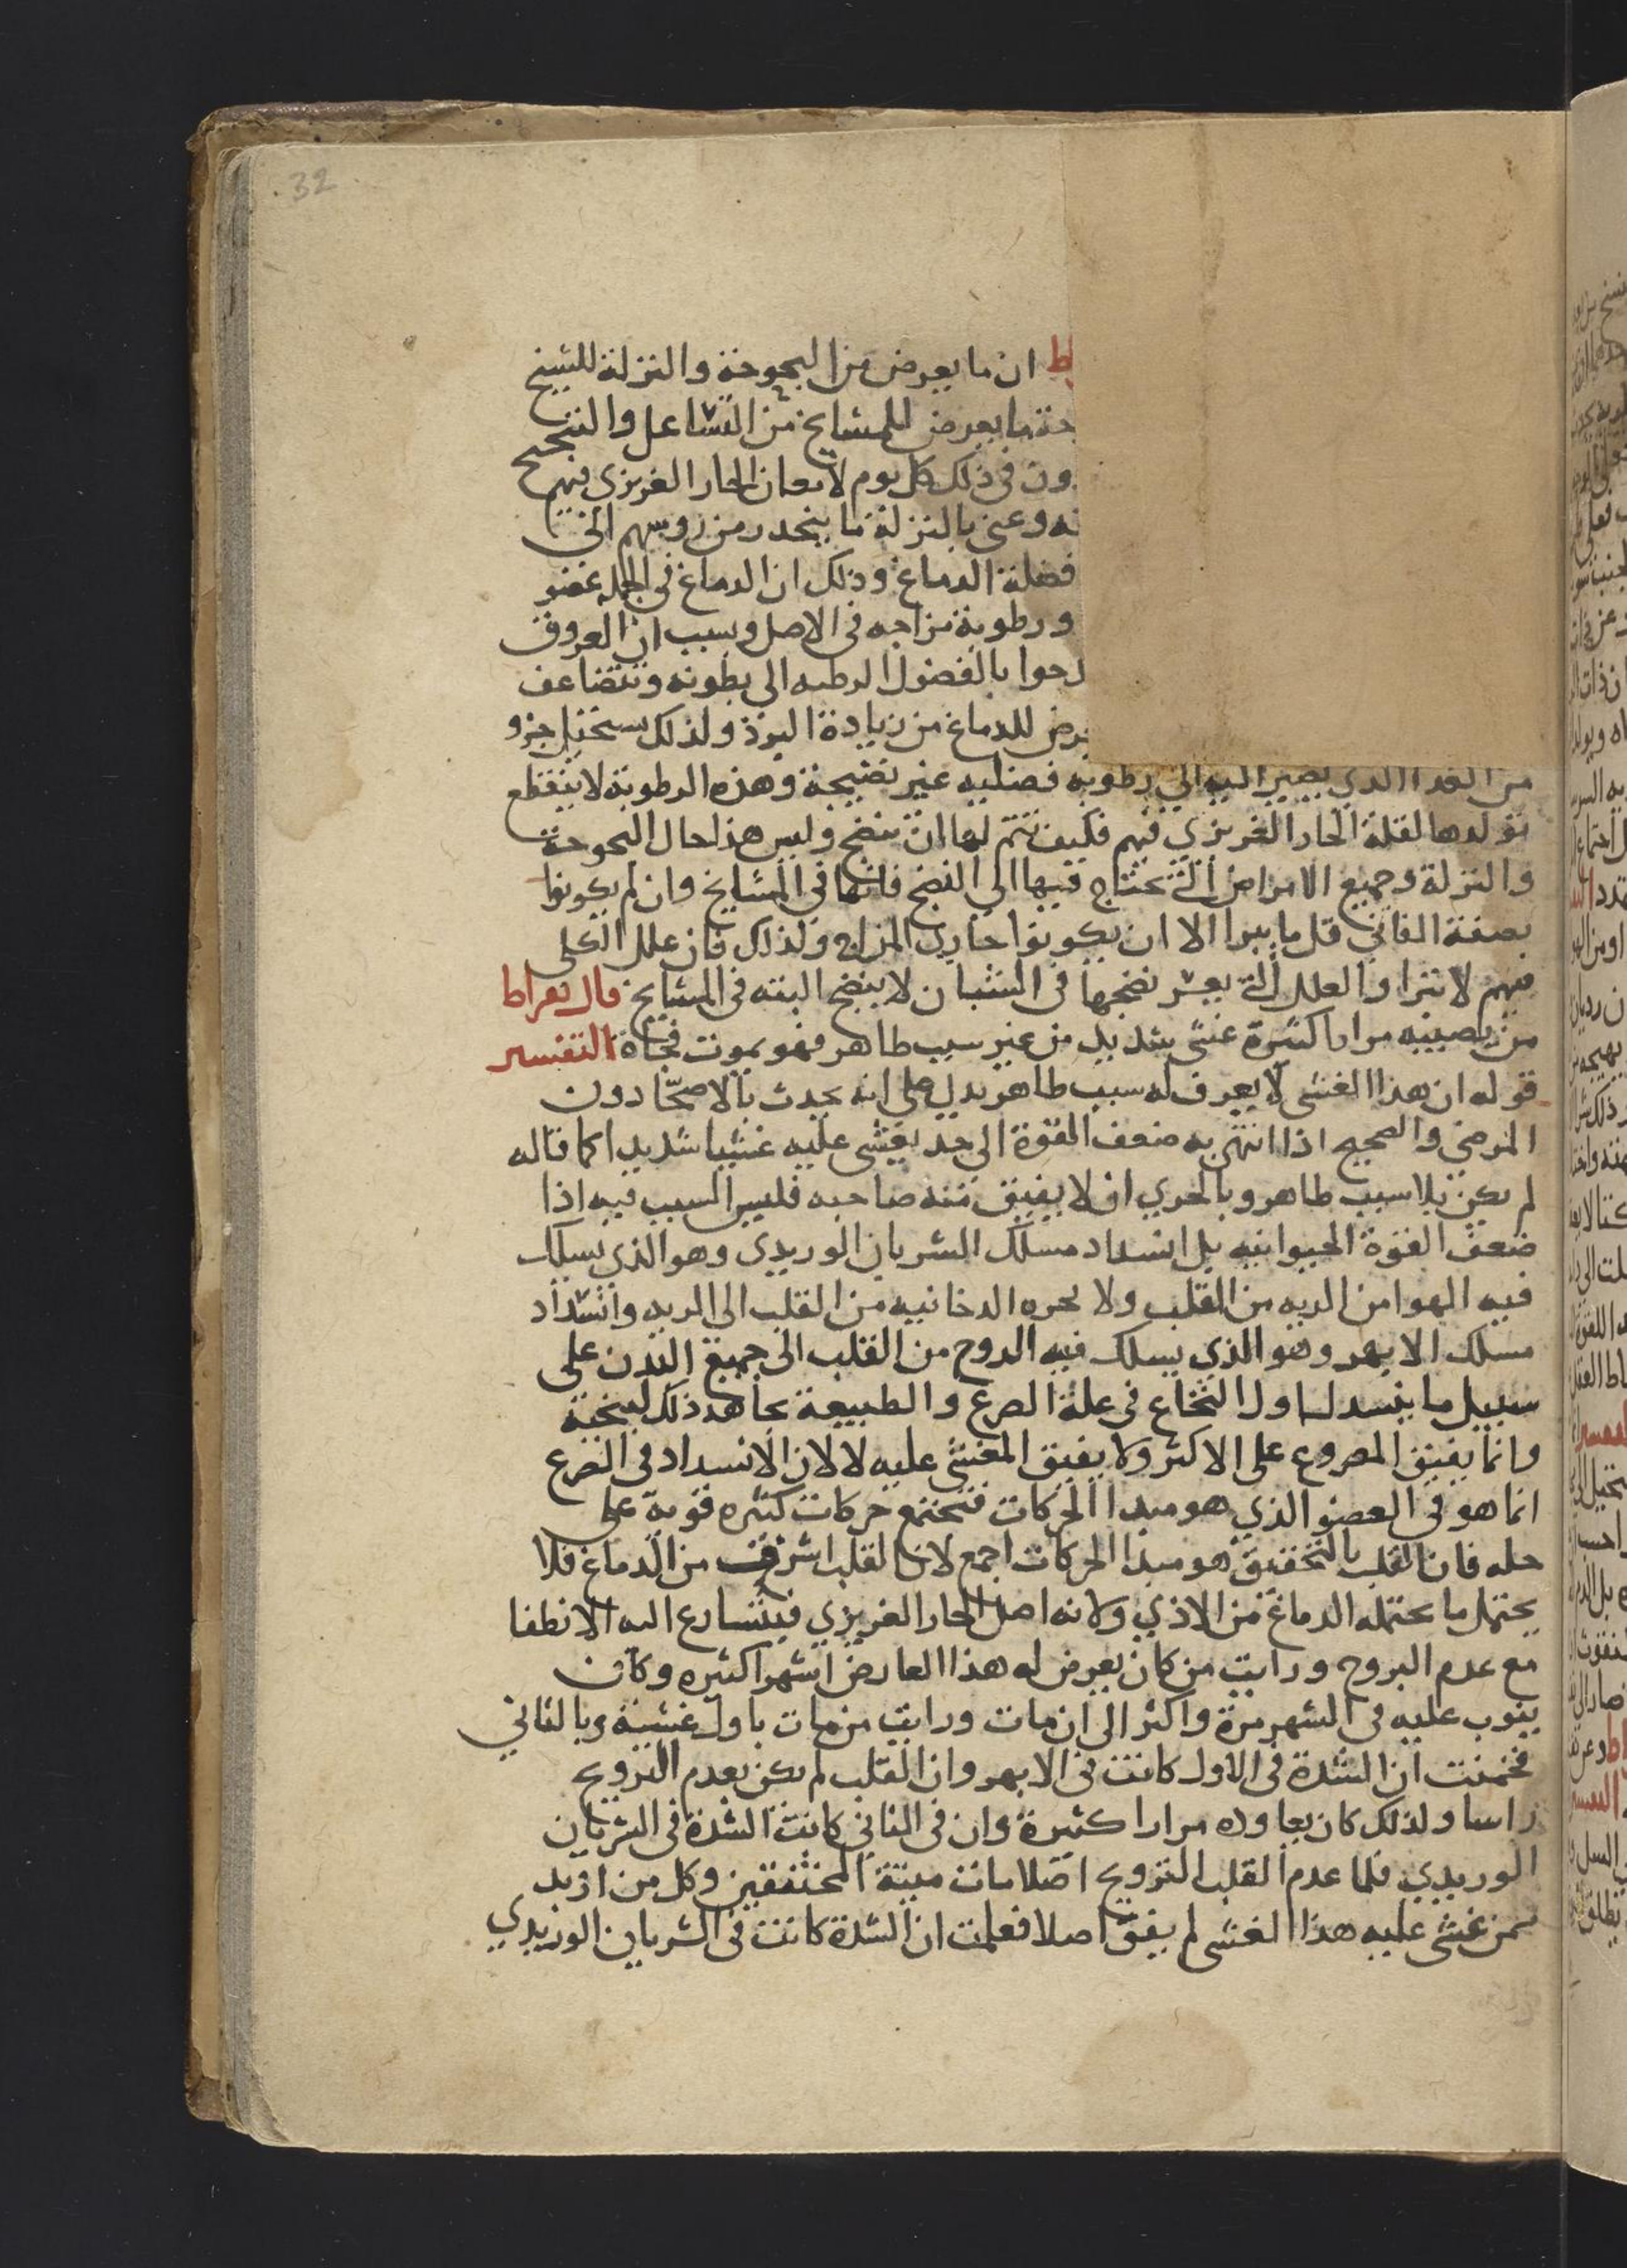 32
ان ما يعرض من البحوحة والنزلة للشيخ
ما يعرض للمشايخ من التشاعل والتنحنح
ون في ذلك كل يوم لا نعان الحار الغريزي فيهم
نه وعني بالنزلة ما ينحدر من روسهم الي
فضلة الدماغ وذلك ان الدماغ في الجمله عضو
ورطوبة مزاجه في الاصل وبسبب ان العروق
بالفضول الرطبه الي بطونه وتتضاعف
يرض للدماغ من زيادة البرد ولذلك يستحيل جزو
من الغدا الذي يصير اليه الي رطوبه فضليه غير نضيجة وهذه الرطوبة لا ينقطع
تولدها لقلة الحار الغريزي فيهم فكيف تتم لها ان تنضج وليس هذا حال البحوحة
والنزلة وجميع الامراض التي تحتاج فيها الي النضج فانها في المشايخ وان لم يكونوا
بصفة الفاني قل ما يبرا الا ان يكونوا حارين المزاج ولذلك فان علل الكلى
فيهم لا تبرا والعلل التي يعسر نضجها في الشبان لا ينضج البته في المشايخ قال بقراط
من يصيبه مرارا كثيرة غشي شديد من غير سبب ظاهر فهو يموت فجاة التفسير
قوله ان هذا الغشي لا يعرف له سبب ظاهر يدل علي انه يحدث بالاصحا دون
المرضي والصحيح اذا انتهي به ضعف القوة الي حد يغشي عليه غشيا شديدا كما قاله
لم يكن بلا سبب ظاهر وبالحري ان لا يفيق منه صاحبه فليس السبب فيه اذا
ضعف القوة الحيوانيه بل انسداد مسلك الشريان الوريدي وهو الذي يسلك
فيه الهوا من الريه من القلب ولا يحره الدخانيه من القلب الي الريه وانسداد
مسلك الابهر وهو الذي يسلك فيه الروح من القلب الي جميع البدن علي
سبيل ما ينسد له اول النخاع في علة الصرع والطبيعة تجاهد ذلك لينحيه
وانما يفيق المصروع علي الاكثر ولا يفيق المغشي عليه لا لان الانسداد في الصرع
انما هو في العضو الذي هو مبدا الحركات فتجتمع حركات كثيره قوية علي
حله فان القلب بالتحقيق هو مبدا الحركات اجمع لان القلب اشرف من الدماغ فلا
يحتمل ما يحتمله الدماغ من الاذي ولانه اصل الحار الغريزي فيتسارع اليه الانطفا
مع عدم البروح ورايت من كان يعرض له هذا العارض اشهرا كثيره وكان
ينوب عليه في الشهر مرة واكثر الي ان مات ورايت من مات باول غشية وبالثاني
فخمنت ان الشدة في الاول كانت في الابهر وان القلب لم يكن يعدم التروح
راسا ولذلك كان يعاوده مرارا كثيرة وان في الثاني كانت الشدة في الشريان
الوريدي فلما عدم القلب التروح اصلا مات ميتة المختنقين وكل من اريد
ممن غشي عليه هذا الغشي لم يفق اصلا فعلمت ان الشدة كانت في الشريان الوريدي